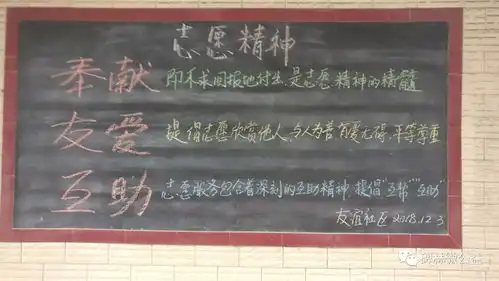 志愿精神
奉献 即不求回报地付出,是志愿精神的精髓
友爱 提倡志愿欣赏他人,与人为善有爱无碍,平等尊重
互助 志愿服务包含着深刻的互助精神,提倡"互帮""互助"
友谊社区 2018.12.3